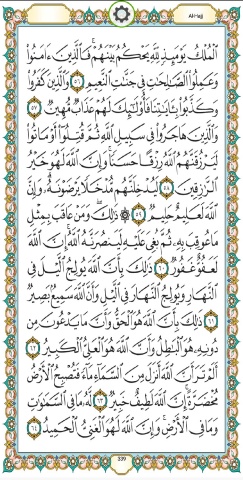 Al-Hajj
ٱلْمُلْكُ يَوْمَئِذٍ لِّلَّهِ يَحْكُمُ بَيْنَهُمْ ۚ فَٱلَّذِينَ ءَامَنُوا۟
وَعَمِلُوا۟ ٱلصَّٰلِحَٰتِ فِى جَنَّٰتِ ٱلنَّعِيمِ ٥٦ وَٱلَّذِينَ كَفَرُوا۟
وَكَذَّبُوا۟ بِـَٔايَٰتِنَا فَأُو۟لَٰٓئِكَ لَهُمْ عَذَابٌ مُّهِينٌ ٥٧
وَٱلَّذِينَ هَاجَرُوا۟ فِى سَبِيلِ ٱللَّهِ ثُمَّ قُتِلُوٓا۟ أَوْ مَاتُوا۟
لَيَرْزُقَنَّهُمُ ٱللَّهُ رِزْقًا حَسَنًا ۚ وَإِنَّ ٱللَّهَ لَهُوَ خَيْرُ
ٱلرَّٰزِقِينَ ٥٨ لَيُدْخِلَنَّهُم مُّدْخَلًا يَرْضَوْنَهُۥ ۗ وَإِنَّ
ٱللَّهَ لَعَلِيمٌ حَلِيمٌ ٥٩ ۞ ذَٰلِكَ ۖ وَمَنْ عَاقَبَ بِمِثْلِ
مَا عُوقِبَ بِهِۦ ثُمَّ بُغِىَ عَلَيْهِ لَيَنصُرَنَّهُ ٱللَّهُ ۗ إِنَّ ٱللَّهَ
لَعَفُوٌّ غَفُورٌ ٦٠ ذَٰلِكَ بِأَنَّ ٱللَّهَ يُولِجُ ٱلَّيْلَ فِى
ٱلنَّهَارِ وَيُولِجُ ٱلنَّهَارَ فِى ٱلَّيْلِ وَأَنَّ ٱللَّهَ سَمِيعٌۢ بَصِيرٌ
٦١ ذَٰلِكَ بِأَنَّ ٱللَّهَ هُوَ ٱلْحَقُّ وَأَنَّ مَا يَدْعُونَ مِن
دُونِهِۦ هُوَ ٱلْبَٰطِلُ وَأَنَّ ٱللَّهَ هُوَ ٱلْعَلِىُّ ٱلْكَبِيرُ ٦٢
أَلَمْ تَرَ أَنَّ ٱللَّهَ أَنزَلَ مِنَ ٱلسَّمَآءِ مَآءً فَتُصْبِحُ ٱلْأَرْضُ
مُخْضَرَّةً ۗ إِنَّ ٱللَّهَ لَطِيفٌ خَبِيرٌ ٦٣ لَّهُۥ مَا فِى ٱلسَّمَٰوَٰتِ
وَمَا فِى ٱلْأَرْضِ ۗ وَإِنَّ ٱللَّهَ لَهُوَ ٱلْغَنِىُّ ٱلْحَمِيدُ ٦٤
339